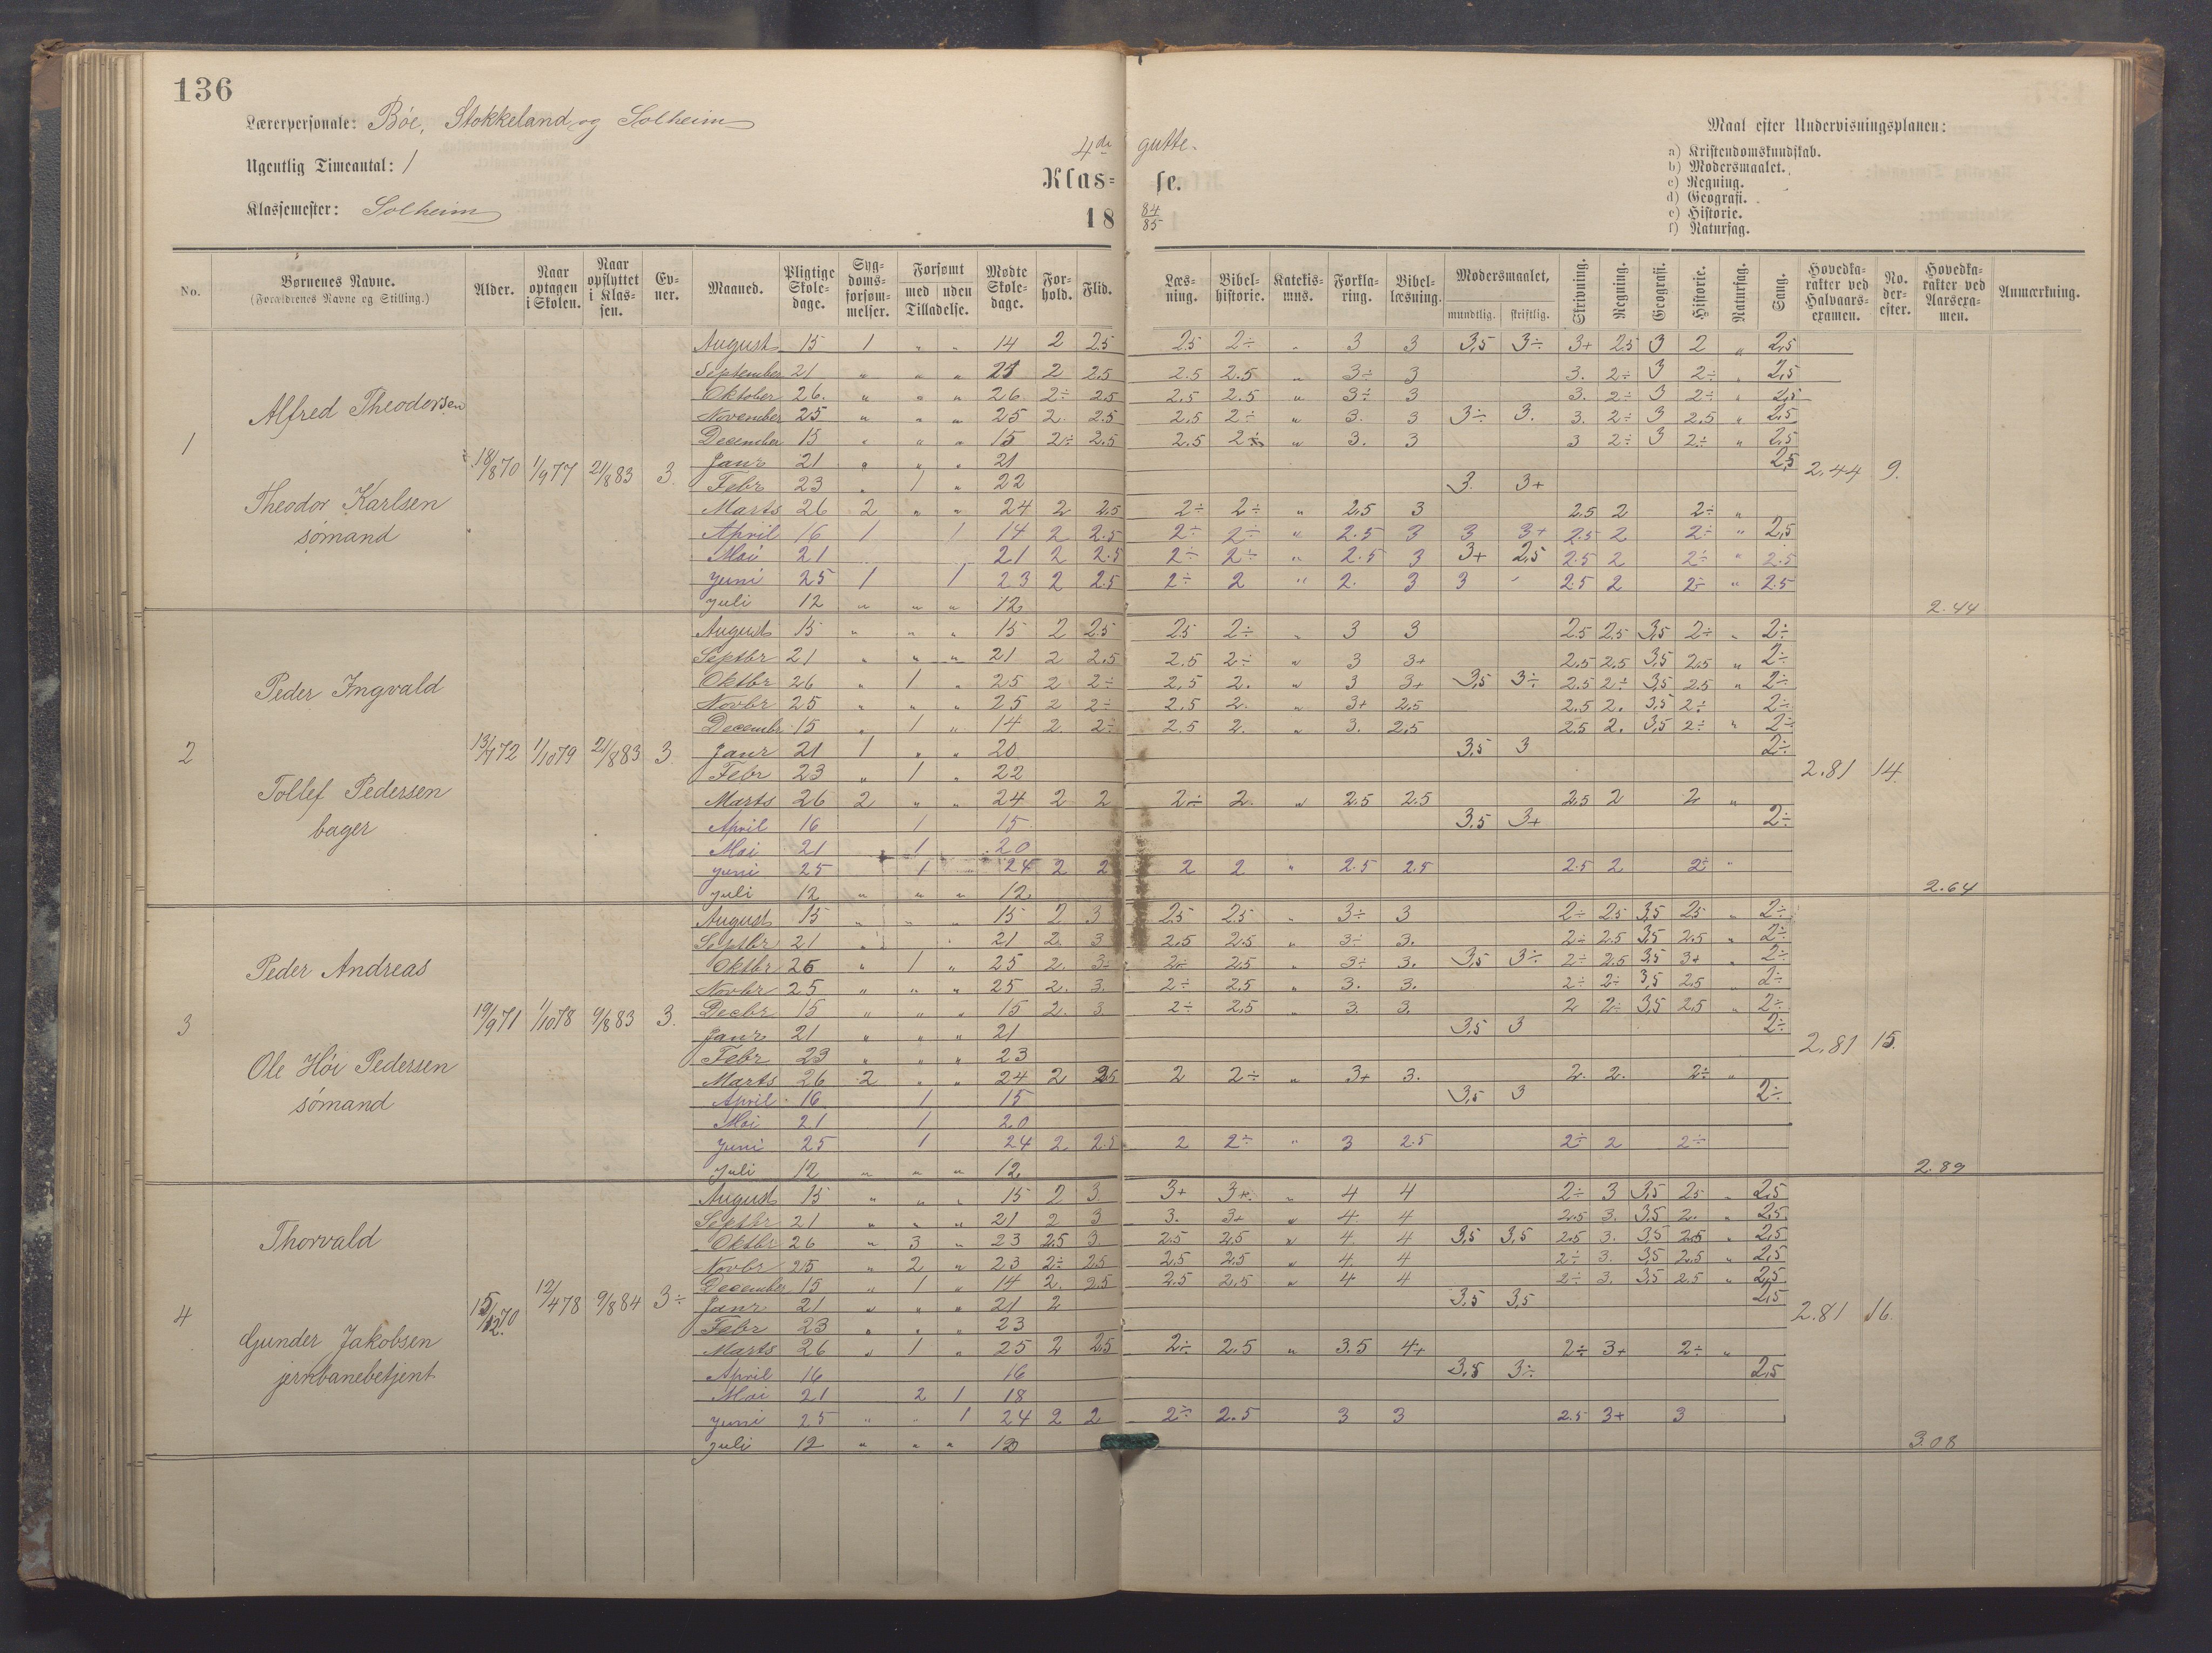 136
Lærerpersonale: Bóe, Stokkeland og Solheim
Ugentlig Timeantal: 1
Klassemester: Solheim
4de gutte-
Klas= se.
18 84/85
Maal efter Undervisningsplanen:
a) Kristendomskundskab.
b) Modersmaalet.
c) Regning.
d) Geografi.
e) Historie.
f) Naturfag.
No. | Børnenes Navne. (Forældrenes Navne og Stilling.) | Alder. | Naar optagen i Skolen. | Naar opflyttet i Klassen. | Evner. | Maaned. | Pligtige Skoledage. | Sygdomsforsømmelser. | Forsømt med uden Tilladelse. | Mødte Skoledage. | Forhold. | Flid. | Læsning. | Bibelhistorie. | Katekismus. | Forklaring. | Bibellæsning. | Modersmaalet, mundtlig. skriftlig. | Skrivning. | Regning. | Geografi. | Historie. | Naturfag. | Sang. | Hovedkarakter ved Halvaarsexamen. | No. derefter. | Hovedkarakter ved Aarsexamen. | Anmærkning.
1 Alfred Theodorsen
Theodor Karlsen
sømand
18/8 70 1/9 77 21/8 83 3. 2,44 9.
August 15 1 " " 14 2 2.5 2.5 2÷ " 3 3 3,5 3÷ 3+ 2.5 3 2 " 2,5
September 21 " " " 21 2 2.5 2.5 2.5 " 3÷ 3 3. 2÷ 3 2÷ " 2,5
Oktober 26. " " " 26 2÷ 2.5 2.5 2.5 " 3÷ 3 3. 2÷ 3 2÷ " 2,5
November 25 " " " 25 2. 2.5 2.5 2÷ " 3. 3 3÷ 3. 3. 2÷ 3 2.5 " 2,5
December 15 " " " 15 2÷ 2.5 2.5 2÷ " 3. 3 3 2÷ 3 2÷ " 2,5
Janr 21 " " " 21 2,5
Febr 23 " 1 " 22 3. 3+
Marts 26 2 " " 24 2 2.5 2÷ 2÷ " 2.5 3 2.5 2 2÷ "
April 16 1 1 14 2 2.5 2÷ 2÷ " 2.5 3 3 3+ 2.5 2 2÷ " 2,5
Mai 21 21 2 2.5 2÷ 2÷ " 2.5 3 3+ 2,5 2.5 2 2÷ " 2.5
Juni 25 1 1 23 2 2.5 2÷ 2 " 2. 3 3 2.5 2 2÷ " 2.5
Juli 12 " " " 12 2.44
2 Peder Ingvald
Tollef Pedersen
bager
13/7 72 1/10 79 21/8 83 3. 2.81 14
August 15 " " " 15 2 2.5 2.5 2÷ " 3 3 2.5 2.5 3,5 2÷ " 2÷
Septbr 21 " " " 21 2 2.5 2.5 2÷ " 3 3+ 2.5 2.5 3,5 2.5 " 2÷
Oktbr 26 " 1 " 25 2 2÷ 2,5 2. " 3 3+ 3,5 3÷ 2.5 2÷ 3,5 2.5 " 2÷
Novbr 25 " " " 25 2 2÷ 2,5 2. " 3+ 2,5 2.5 2. 3,5 2÷ 2÷
Decembr 15 " 1 " 14 2. 2÷ 2.5 2. " 3. 2,5 2.5 2. 3,5 2÷ " 2÷
Janr 21 1 " " 20 3,5 3 2÷
Febr 23 " 1 " 22
Marts 26 2 " " 24 2 2 2÷ 2. " 2.5 2.5 2.5 2 2 "
April 16 1 15 3,5 3+ 2÷
Mai 21 1 20
Juni 25 1 24 2 2 2 2 " 2.5 2.5 2.5 2 2÷ "
Juli 12 " " " 12 2.64
3 Peder Andreas
Ole Hói Pedersen
sómand
19/9 71 1/10 78 9/8 83 3. 2,81 15.
August 15 " " " 15 2 3 2.5 2.5 " 3÷ 3 2÷ 2.5 3,5 2.5 " 2÷
Septbr 21 " " 21 2. 3 2.5 2.5 " 3÷ 3. 2÷ 2.5 3,5 2.5 " 2÷
Oktbr 26 " 1 " 25 2. 3÷ 2÷ 2.5 " 3÷ 3. 3,5 3÷ 2÷ 2.5 3,5 3+ " 2÷
Novbr 25 " " " 25 2. 3. 2÷ 2.5 " 3. 3. 2÷ 2÷ 3,5 2.5 " 2÷
Decbr 15 " " " 15 2. 3 2÷ 2.5 " 3. 3. 2 2÷ 3,5 2.5 " 2÷
Janr 21 " " " 21 3,5 3 2÷
Febr 23 " " " 23
Marts 26 2 " " 24 2 2.5 2 2÷ " 3+ 3. 2. 2. 2÷ "
April 16 1 15 3,5 3 2÷
Mai 21 1 20
Juni 25 1 24 2 2.5 2 2÷ " 3 2.5 2÷ 2 2÷
Juli 12 " " " 12. 2.89
4 Thorvald
Gunder Jakobsen
jernbanebetjent
15/12 70 12/4 78 9/8 84 3÷ 2.81 16.
August 15 " " " 15 2 3 3+ 3+ " 4 4 2÷ 3 3,5 2.5 " 2,5
Septbr 21 " " " 21 2 3 3. 3+ " 4. 4 2.5 3. 3,5 2. " 2,5
Oktbr 26 " 3 " 23 2.5 3. 2.5 2.5 " 4. 4 3,5 3,5 2.5 3. 3,5 2.5 " 2,5
Novbr 25 " 2 " 23 2÷ 2.5 2.5 2.5 " 4. 4 2÷ 3. 3,5 2.5 " 2,5
December 15 " 1 " 14 2. 2.5 2.5 2,5 " 4 4 2÷ 3. 3,5 2.5 " 2,5
Janr 21 " " " 21 2 3,5 3,5 2,5
Febr 23 " " " 23
Marts 26 " 1 " 25 2 2.5 2÷ 2.5 " 3.5 4+ 2÷ 3+ 2÷ "
April 16 16 3,5 3÷ 2,5
Mai 21 2 1 18
Juni 25 " " 1 24 2 2 2÷ 2.5 3 3 2.5 3+ 3
Juli 12 " " " 12 3.08